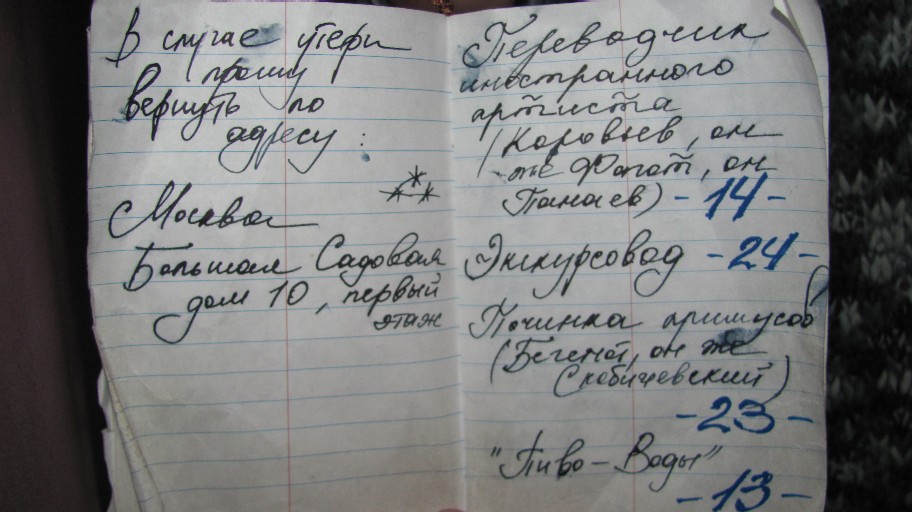 В случае утери
прошу
вернуть по
адресу:
Москва
Большая Садовая
дом 10, первый
этаж
Переводчик
иностранного
артиста
(Коровьев, он
же Фагот, он
Панаев) -14-
Экскурсовод -24-
Починка примусов
(Бегемот, он же
Скабичевский)
-23-
"Пиво-Воды"
-13-